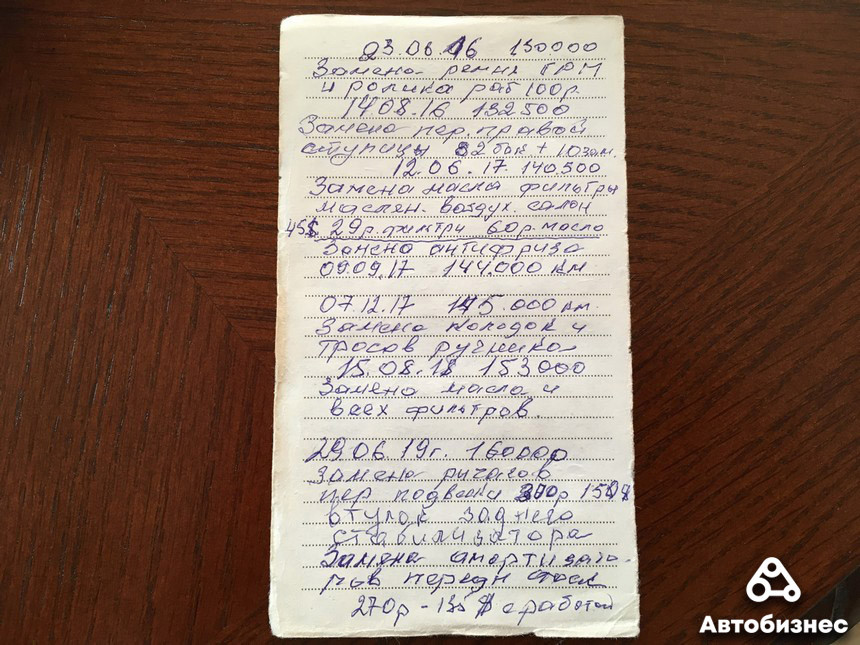 23.06.16 130.000
Замена ремня ГРМ
и ролика раб 100р.
14.08.16 132500
Замена пер. правой
ступицы 32 бак + 10 зам.
12.06.17. 140.500
Замена масла фильтры
маслян. воздух. салон
45$ 29р. фильтри 60р. масло
Замена антифриза
09.09.17 144.000 км
07.12.17 145.000 км.
Замена колодок и
тросов ручника
15.08.18 153000
Замена масла и
всех фильтров.
29.06.19г. 160000
Замена рычагов
пер подвески 300р 150$
втулок заднего
стабилизатора
Замена амортизато-
ров передн
270р - 135$ с работой
Автобизнес